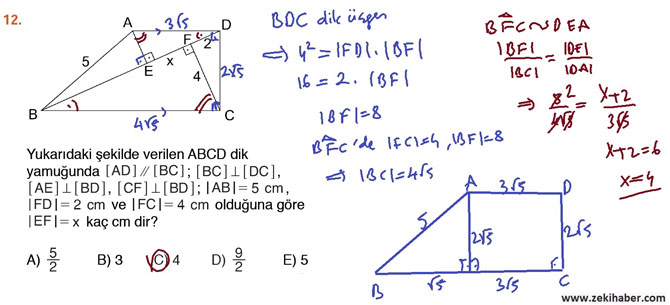 12.
A 3√5 D
F 2
5 E x 4 2√5
B 4√5 C
Yukarıdaki şekilde verilen ABCD dik
yamuğunda [AD] // [BC]; [BC]⊥[DC],
[AE]⊥[BD], [CF]⊥[BD]; |AB|= 5 cm ,
|FD|= 2 cm ve |FC|= 4 cm olduğuna göre
|EF|= x kaç cm dir?
A) 5/2 B) 3 C) 4 D) 9/2 E) 5
BDC dik üçgen
⇒ 4² = |FD|.|BF|
16 = 2 . |BF|
|BF|=8
BFC'de |FC|=4, |BF|=8
⇒ |BC|=4√5
BFC ~ DEA
|BF|/|BC| = |DE|/|DA|
⇒ 8/4√5 = x+2/3√5
x+2=6
x=4
A 3√5 D
5 2√5 2√5
B √5 3√5 C
www.zekihaber.com